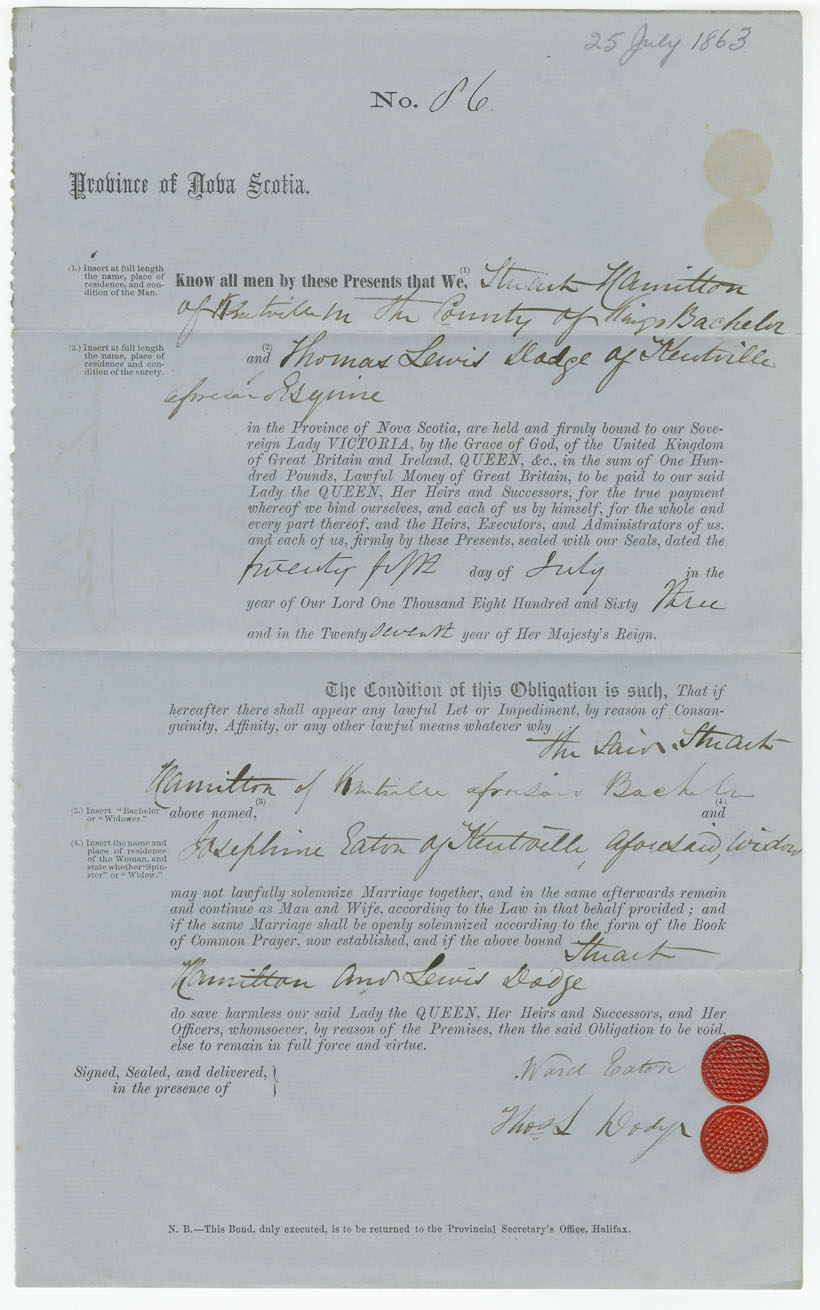 25 July 1863
No. 86
Province of Nova Scotia.
(1.) Insert at full length
the name, place of
residence, and con-
dition of the Man.
Know all men by these Presents that We, (1) Stuart Hamilton
of Kentville in the County of Kings Bachelor
(2.) Insert at full length
the name, place of
residence and con-
dition of the surety.
and (2) Thomas Lewis Dodge of Kentville
aforesaid Esquire
in the Province of Nova Scotia, are held and firmly bound to our Sove-
reign Lady VICTORIA, by the Grace of God, of the United Kingdom
of Great Britain and Ireland, QUEEN, &c., in the sum of One Hun-
dred Pounds, Lawful Money of Great Britain, to be paid to our said
Lady the QUEEN, Her Heirs and Successors, for the true payment
whereof we bind ourselves, and each of us by himself, for the whole and
every part thereof, and the Heirs, Executors, and Administrators of us,
and each of us, firmly by these Presents, sealed with our Seals, dated the
twenty fifth day of July in the
year of Our Lord One Thousand Eight Hundred and Sixty three
and in the Twenty seventh year of Her Majesty's Reign.
The Condition of this Obligation is such, That if
hereafter there shall appear any lawful Let or Impediment, by reason of Consan-
guinity, Affinity, or any other lawful means whatever why
the said Stuart
Hamilton of Kentville aforesaid Bachelor
(3.) Insert "Bachelor"
or "Widower."
above named, (3) (4) and
(4.) Insert the name and
place of residence
of the Woman, and
state whether "Spin-
ster" or "Widow."
Josephine Eaton of Kentville, aforesaid, Widow
may not lawfully solemnize Marriage together, and in the same afterwards remain
and continue as Man and Wife, according to the Law in that behalf provided; and
if the same Marriage shall be openly solemnized according to the form of the Book
of Common Prayer, now established, and if the above bound Stuart
Hamilton and Lewis Dodge
do save harmless our said Lady the QUEEN, Her Heirs and Successors, and Her
Officers, whomsoever, by reason of the Premises, then the said Obligation to be void,
else to remain in full force and virtue.
Signed, Sealed, and delivered,
in the presence of
Ward Eaton
Thos L Dodge
N. B.—This Bond, duly executed, is to be returned to the Provincial Secretary's Office, Halifax.